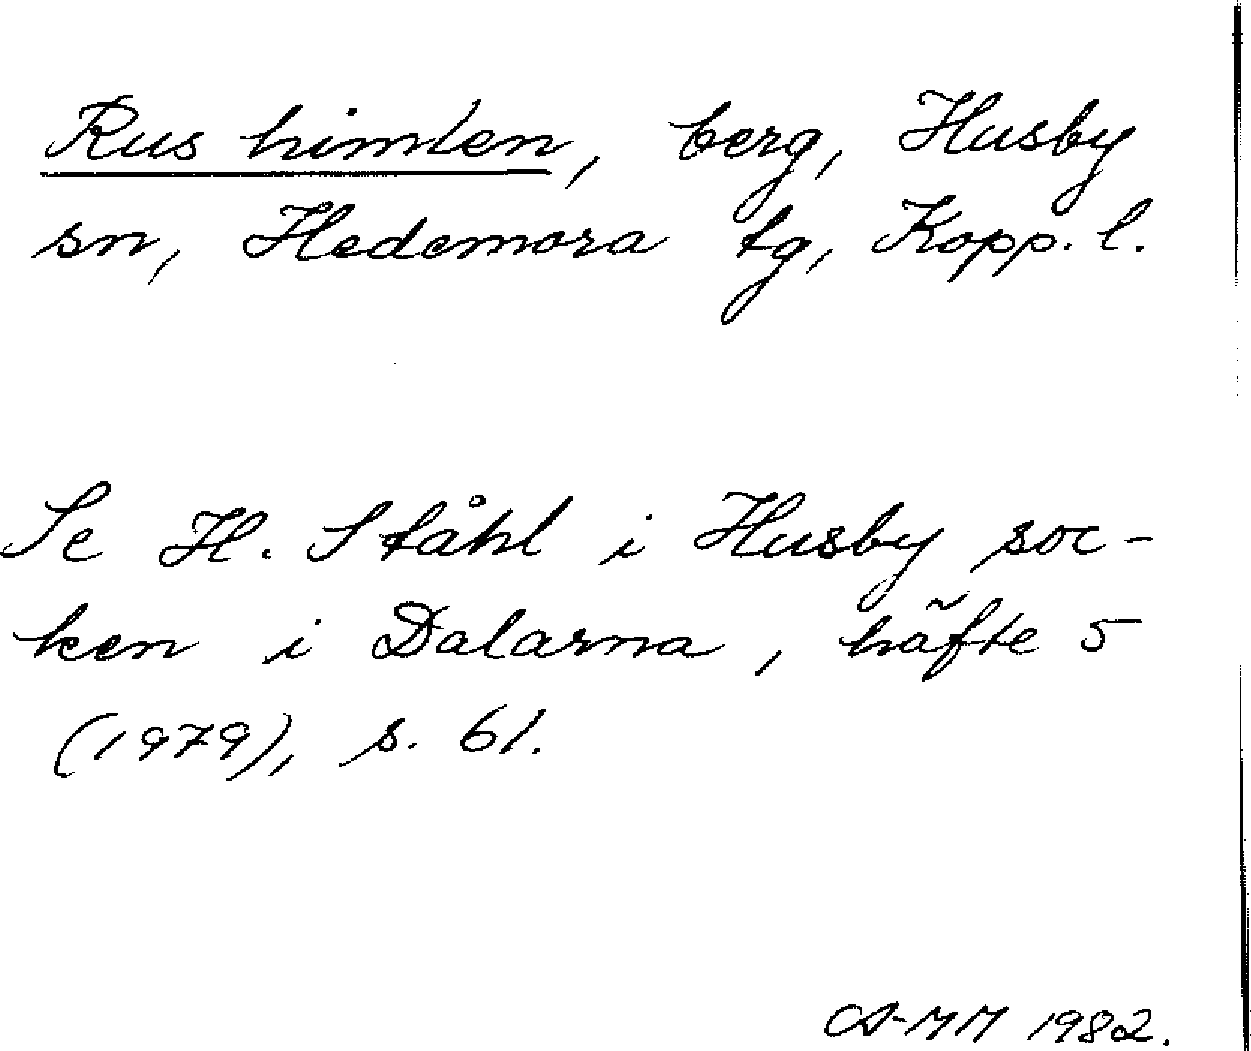 Rus himlen, berg, Husby
sn, Hedemora tg, Kopp. l.
Se H. Ståhl i Husby soc-
ken i Dalarna, häfte 5
(1979), s. 61.
A-MM 1982.